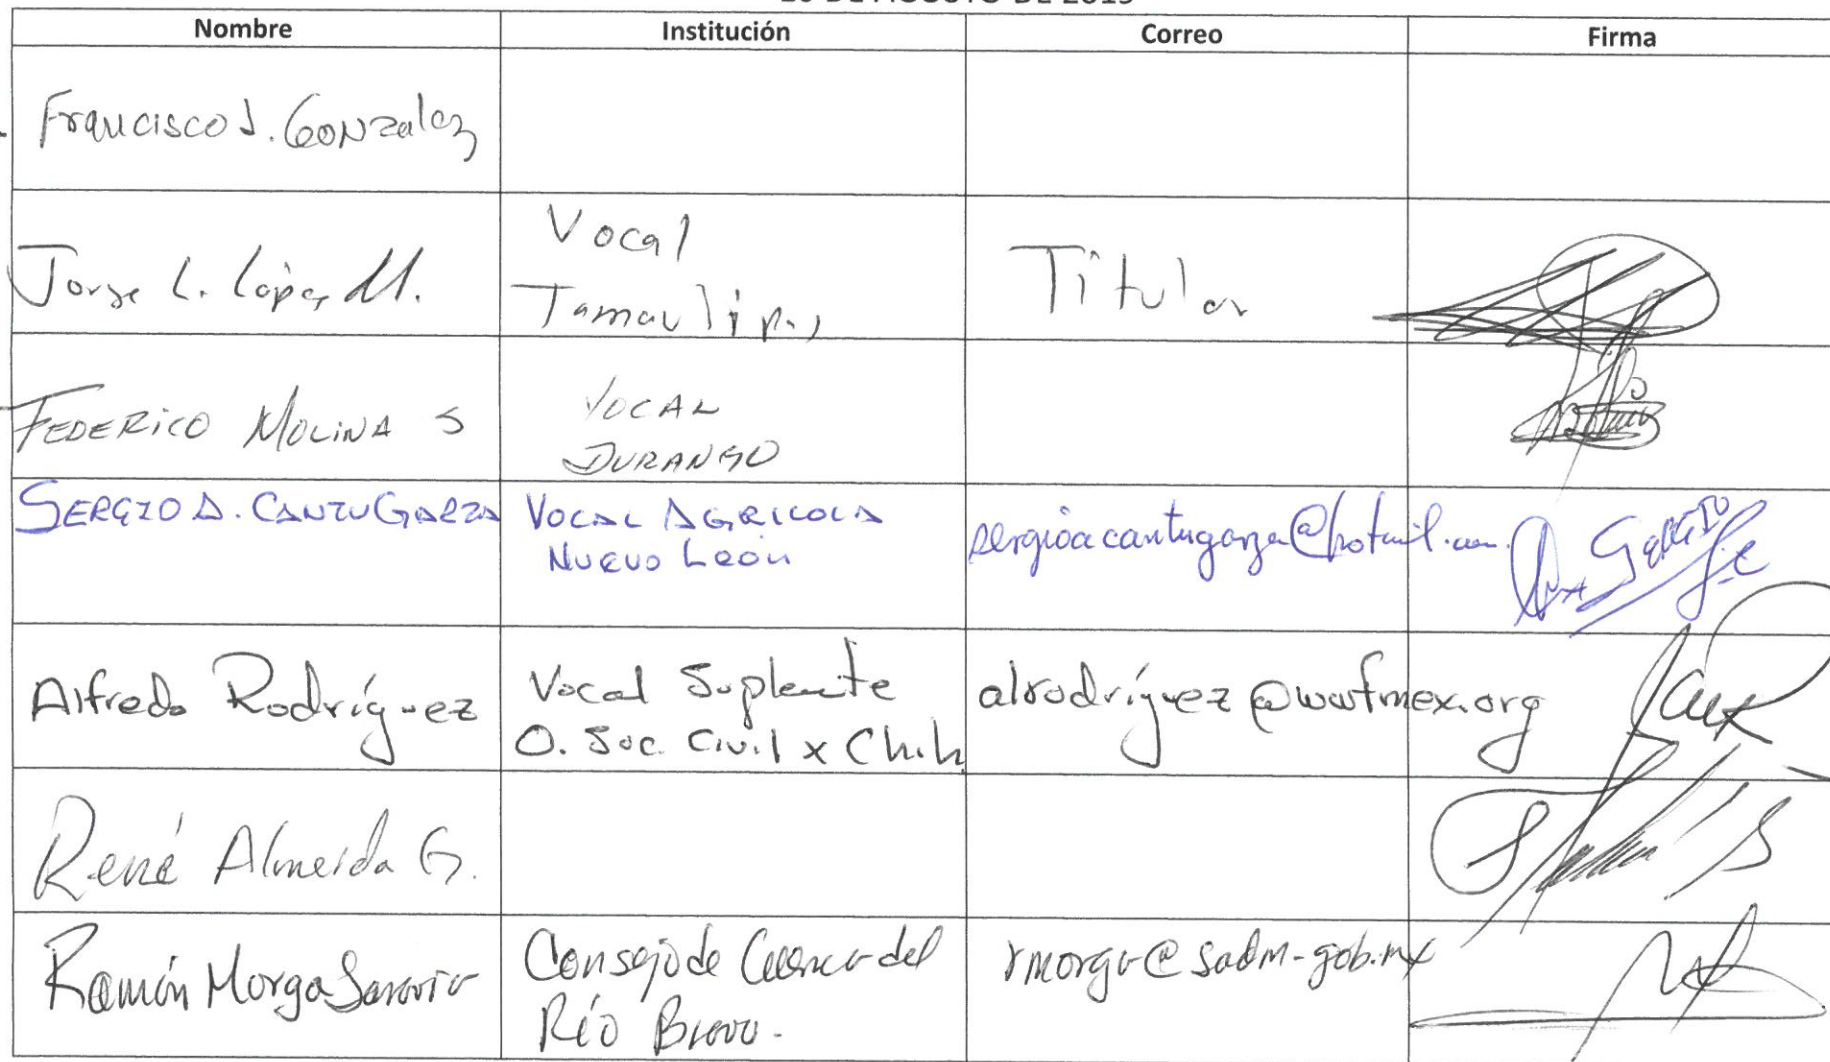 DE AGOSTO DE 2015
Nombre Institución Correo Firma
Francisco J. Gonzalez
Jorge L. López M. Vocal Tamaulipas Titular
FEDERICO MOLINA S VOCAL DURANGO
SERGIO A. CANTU GARZA VOCAL AGRICOLA NUEVO León sergioacantugarza@hotmail.com
Alfredo Rodríguez Vocal Suplente O. Soc. Civil x Chih alrodríguez@wwfmex.org
René Almeida G.
Ramón Morga Saravia Consejo de Cuenca del Río Bravo. rmorga@sadm-gob.mx